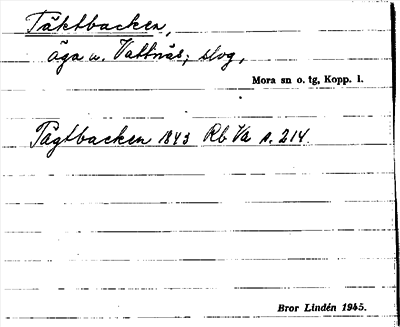 Täktbacken,
äga u. Vattnäs; slog,
Mora sn o. tg, Kopp. l.
Tägtbacken 1843 Rb Va s. 214
Bror Lindén 1945.